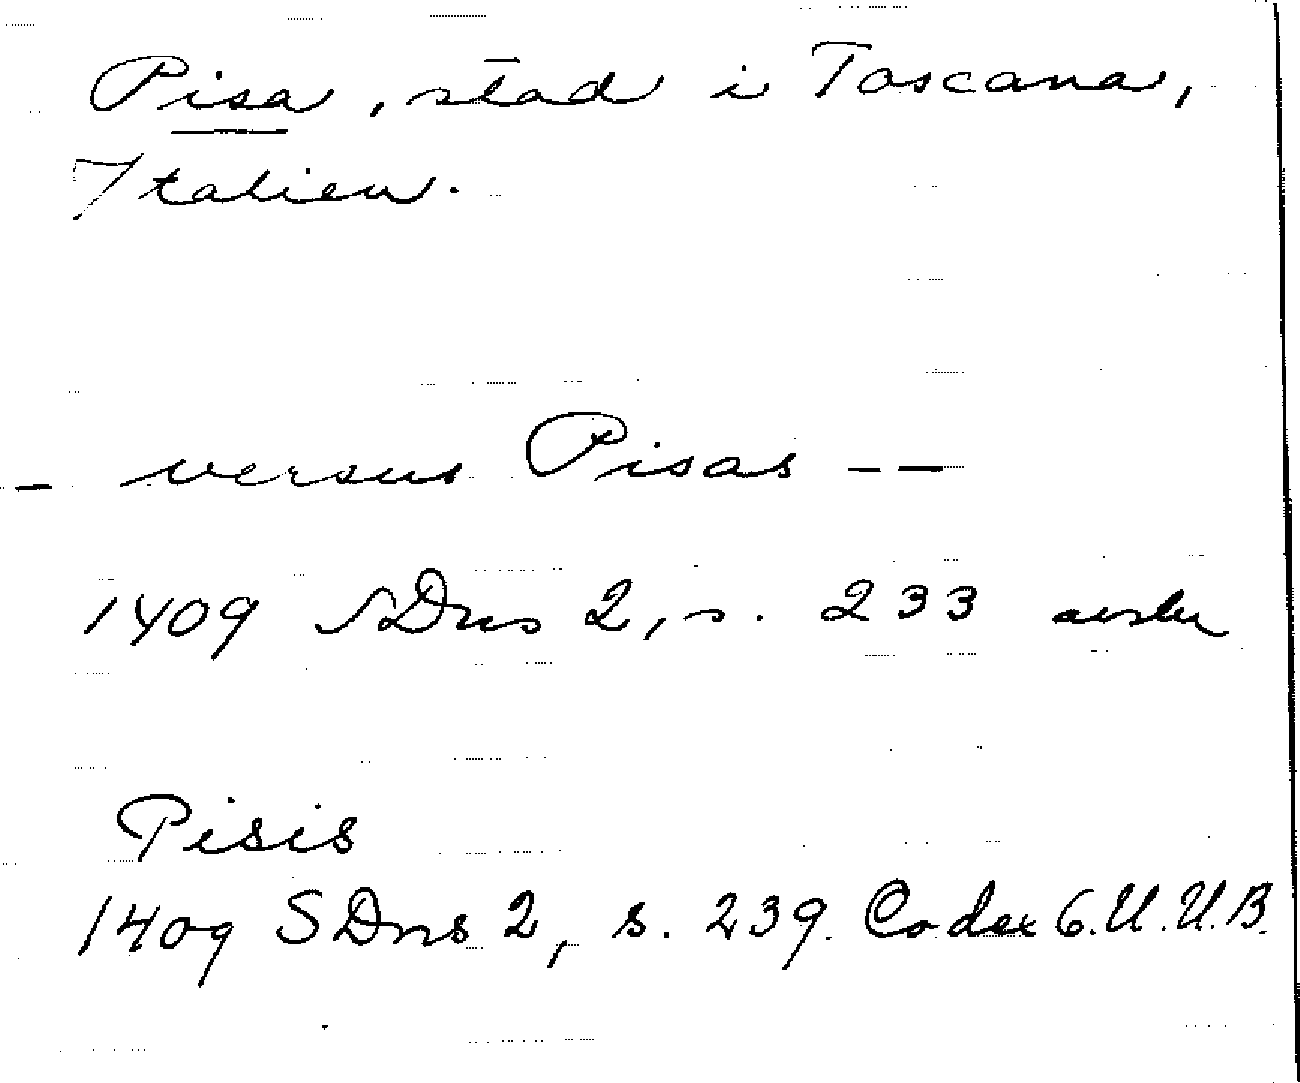 Pisa, stad i Toscana,
Italien.
- versus Pisas - -
1409 SDns 2, s. 233
Pisis
1409 SDns 2, s. 239. Codex 6. U.U.B.